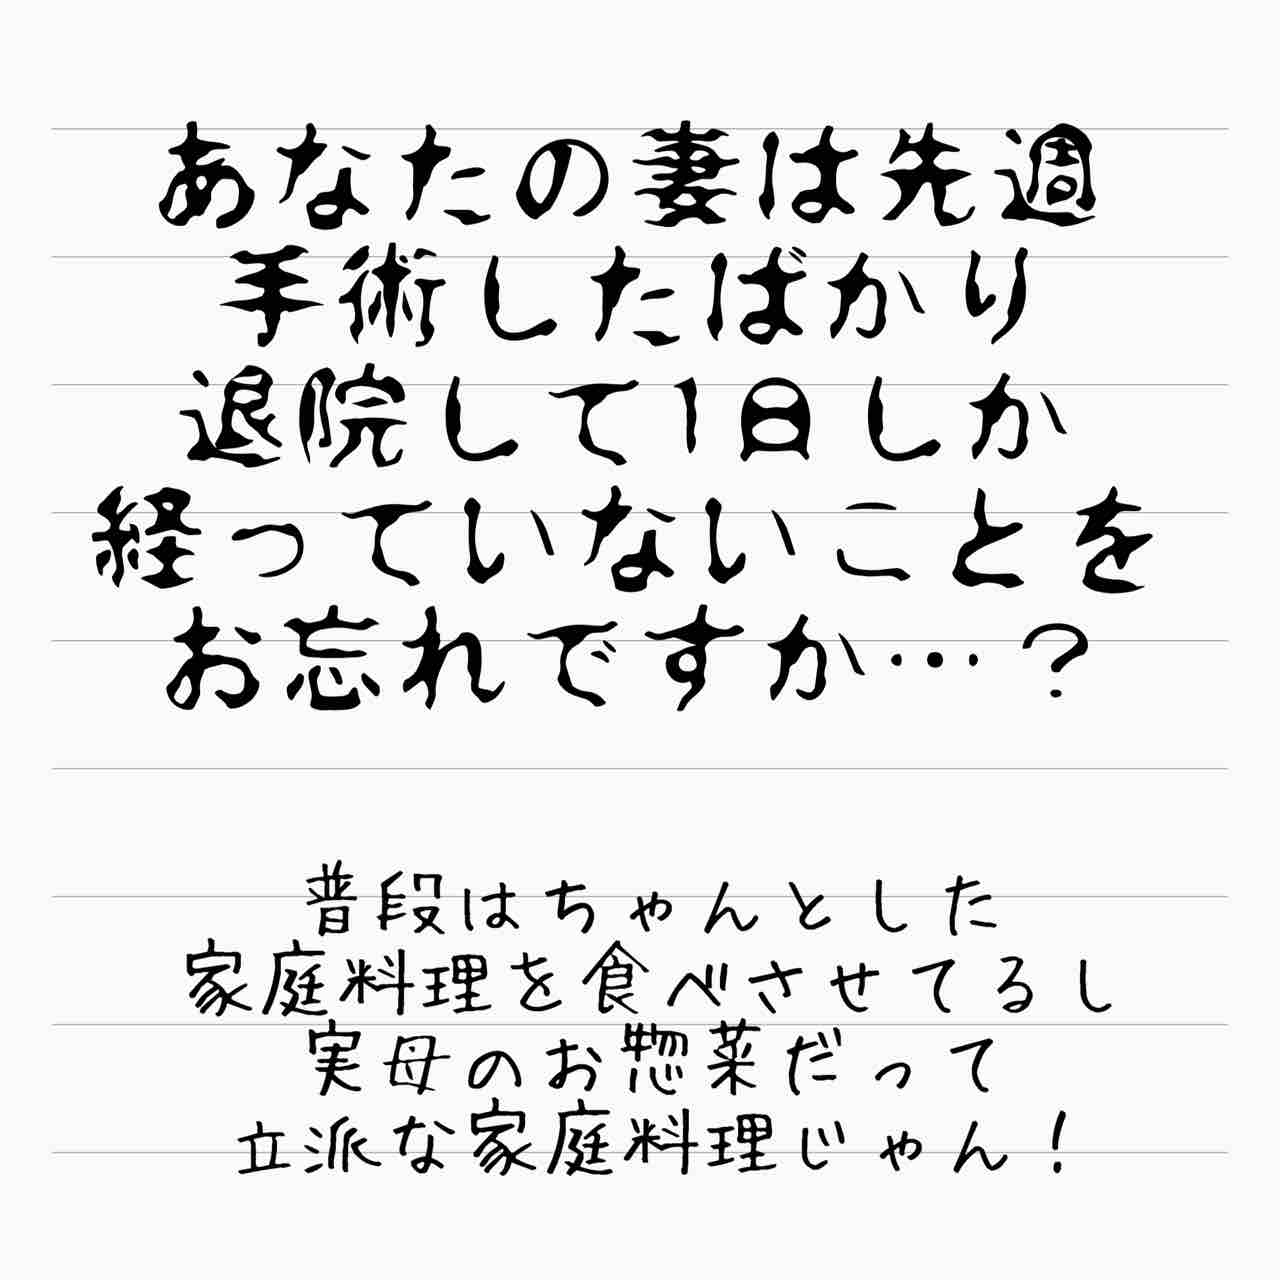 あなたの妻は先週
手術したばかり
退院して1日しか
経っていないことを
お忘れですか…？
普段はちゃんとした
家庭料理を食べさせてるし
実母のお惣菜だって
立派な家庭料理じゃん！